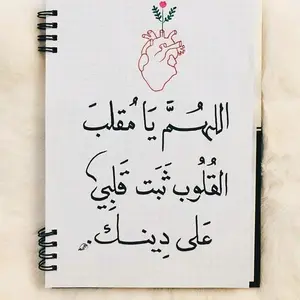 اللهُمَّ يَا مُقلبَ
القُلُوب ثَبَت قَلبِي
عَلى دِينك.